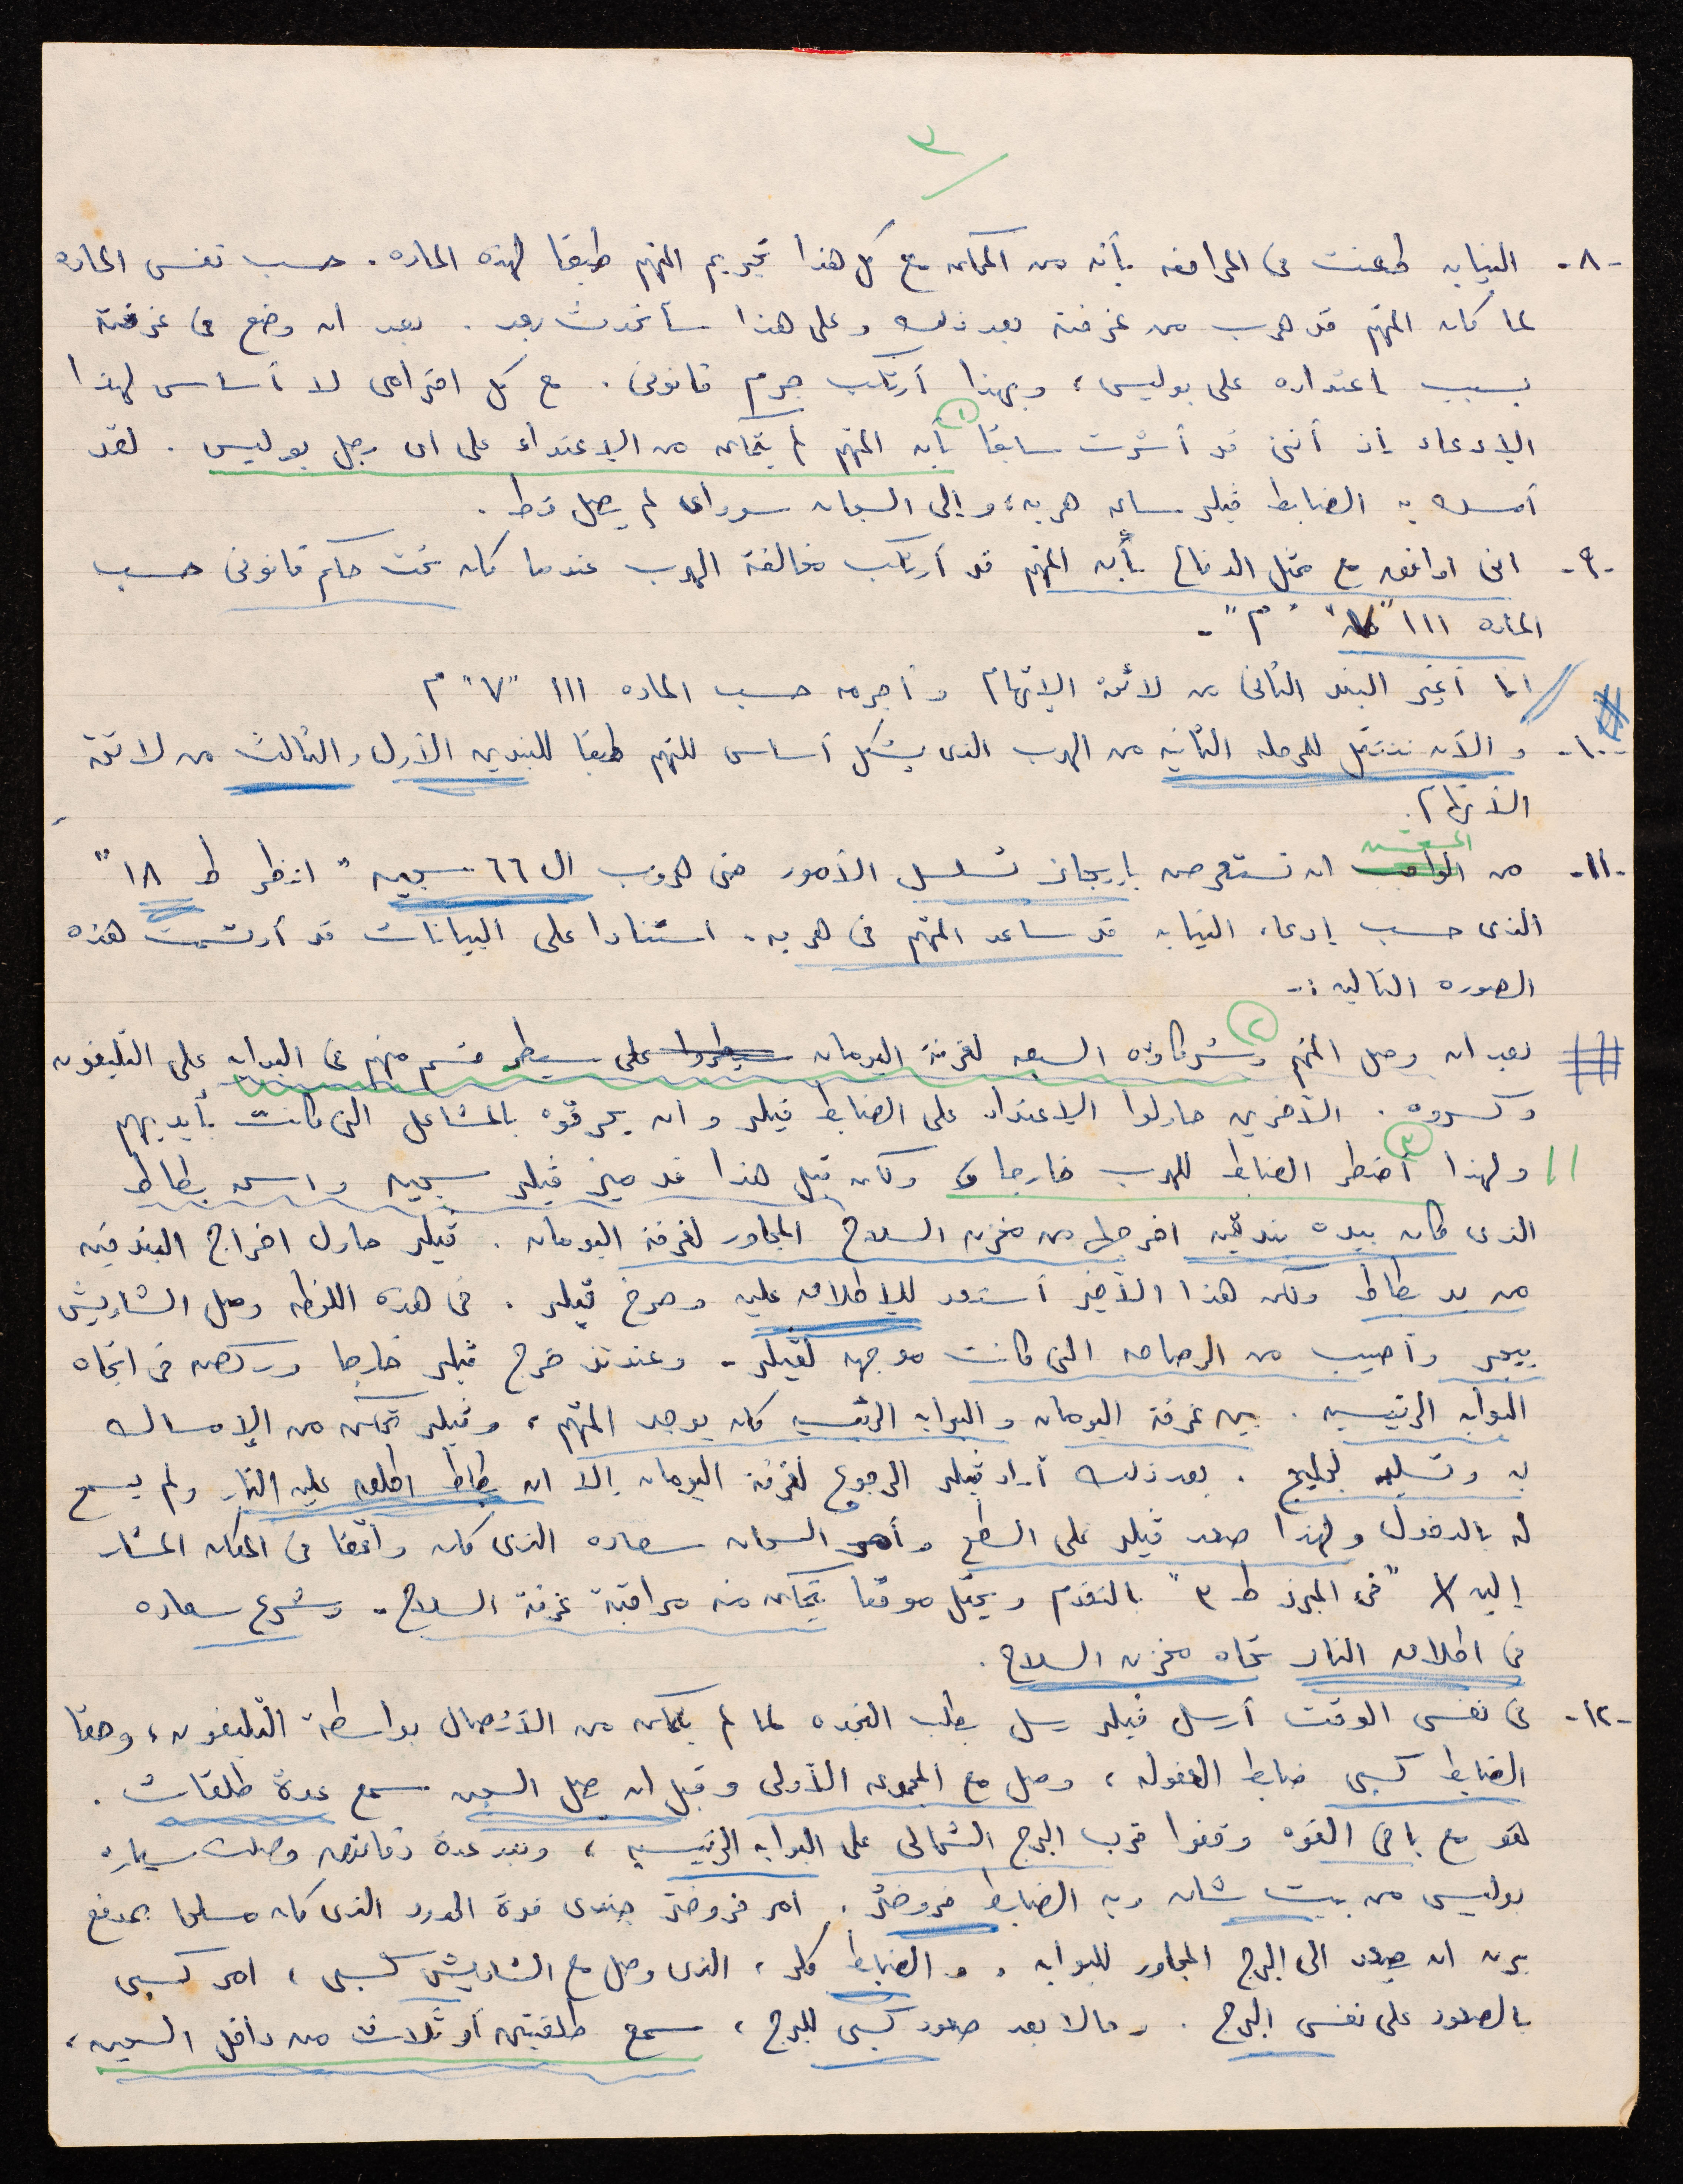 ٣
-٨- النيابه طعنت فى المرافعه بأنه من الممكن مع كل هذا تجريم المتهم طبقا لهذه الماده. حسب نفس الماده
لما كان المتهم قد هرب من غرفته بعد ذلك وعلى هذا سأتحدث بعد. بعد ان وضع فى غرفته
بسبب اعتداءه على بوليس، وبهذا أرتكب جرم قانونى. مع كل احترامى لا أساس لهذا
الإدعاء إذ أننى قد أشرت سابقا ١ بأن المتهم لم يتمكن من الإعتداء على اى رجل بوليس. لقد
أمسك به الضابط فيلر ساعه هربه، وإلى السجان سوراى لم يصل قط.
-٩- انى اوافق مع ممثل الدفاع بأن المتهم قد أرتكب مخالفة الهرب عندما كان تحت حكم قانونى حسب
الماده ١١١ " م" -
انا أغير البند الثانى من لائحة الإتهام وأجرمه حسب الماده ١١١ "٧" م
-١٠- والآن ننتقل للمرحله الثانيه من الهرب الذى يشكل أساس للتهم طبقا للبندين الأول والثالث من لائحة
الأتهام.
-١١- من المستحسن ان نستعرض بإيجاز تسلسل الأمور حتى هروب ال ٦٦ سجين "انظر ط ١٨"
الذى حسب إدعاء النيابه قد ساعد المتهم فى هربه. استنادا على البيانات قد أرتسمت هذه
الصوره التاليه :-
بعد ان وصل المتهم ٢ وشركاؤه السبعه لغرفة اليومان سيطروا على سيطر قسم منهم فى البدايه على التليفون
وكسروه. الآخرين حاولوا الإعتداء على الضابط فيلر وان يحرقوه بالمشاعل التى كانت بأيديهم
ولهذا ٣ أضطر الضابط للهرب خارجا وكان قبل هذا قد ميز فيلر سجين واسمه بطاط
الذى كان بيده بندقيه اخرجها من مخزن السلاح المجاور لغرفة اليومان. فيلر حاول اخراج البندقيه
من يد بطاط ولكن هذا الأخير أستعد للإطلاق عليه وصرخ فيلر. فى هذه اللحظه وصل الشاويش
بيجر وأصيب من الرصاصه التى كانت موجهه لفيلر- وعندئذ خرج فيلر خارجا وركض فى اتجاه
البوابه الرئيسيه. بين غرفة اليومان والبوابه الرئيسيه كان يوجد المتهم، وفيلر تمكن من الإمساك
به وتسليمه. بعد ذلك أراد فيلر الرجوع لغرفة اليومان إلا ان بطاط اطلق عليه النار ولم يسمح
له بالدخول ولهذا صعد فيلر على السطح وأمر السجان سعاده الذى كان واقفا فى المكان المشار
إليه X "فى المبرز ط ٣" بالتقدم ويحتل موقعا يتمكن منه مراقبة غرفة السلاح- وشرع سعاده
فى اطلاق النار تجاه مخزن السلاح.
-١٢- فى نفس الوقت أرسل فيلر رسل بطلب النجده لما لم يتمكن من الأتصال بواسطة التليفون، وحقا
الضابط كسبى ضابط العفوله، وصل مع المجموعه الأولى وقبل ان يصل السجن سمع عدة طلقات.
هو مع باقى القوه وقفوا قرب البرج الشمالى على البوابه الرئيسيه، وبعد عدة دقائق وصلت سياره
بوليس من بيت شان وبه الضابط فروختر. امر فروختر جندى قوة الحدود الذى كان مسلحا بمدفع
برن ان يصعد الى البرج المجاور للبوابه. والضابط كلر، الذى وصل مع الشاويش كسبى، امر كسبى
بالصعود على نفس البرج. وحالا بعد صعود كسبى للبرج، سمع طلقتين أو ثلاث من داخل السجن،